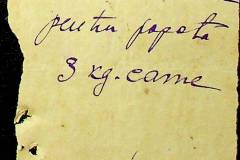 pentru popota
3 kg. carne